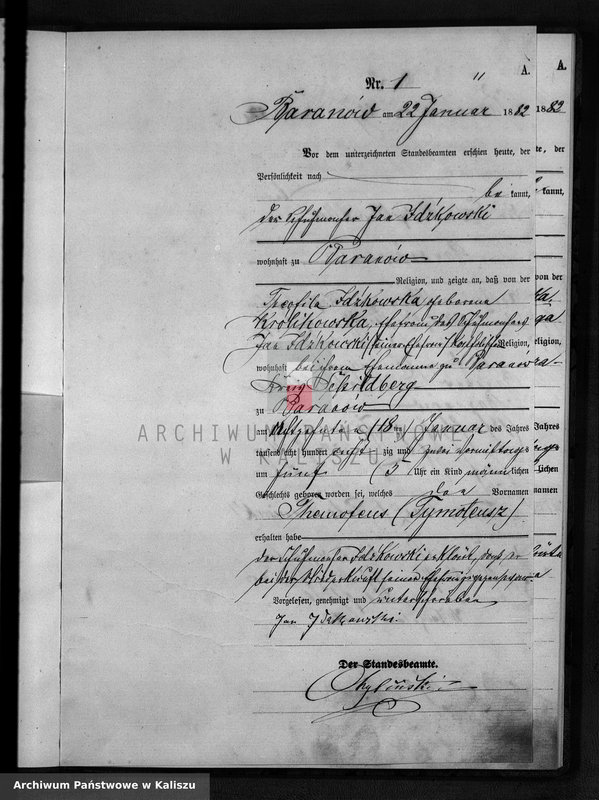 A.
Nr. 1
Baranów am 22 Januar 1882
Vor dem unterzeichneten Standesbeamten erschien heute, der
Persönlichkeit nach
be kannt,
der Schuhmacher Jan Idzkowski
wohnhaft zu Baranów
Religion, und zeigte an, daß von der
Theofila Idzkowska geborene
Krolikowska, Ehefrau des Schuhmachers
Jan Idzkowski, Religion,
wohnhaft bei ihrem Ehemanne zu Baranów
Kreis Schildberg
zu Baranów
am achtzehnten (18ten) Januar des Jahres
tausend acht hundert acht zig und zwei Vormittags
um fünf (5) Uhr ein Kind männ lichen
Geschlechts geboren worden sei, welches den Vornamen
Thimoteus (Tymoteusz)
erhalten habe
der Schuhmacher Idzkowski erklärt, daß er
bei der Niederkunft seiner Ehefrau zugegen
Vorgelesen, genehmigt und unterschrieben
Jan Idzkowski.
Der Standesbeamte.
A.
1882
te, der
kannt,
von der
eligion,
Jahres
lichen
namen
ARCHIWUM PAŃSTWOWE
W KALISZU
Archiwum Państwowe w Kaliszu